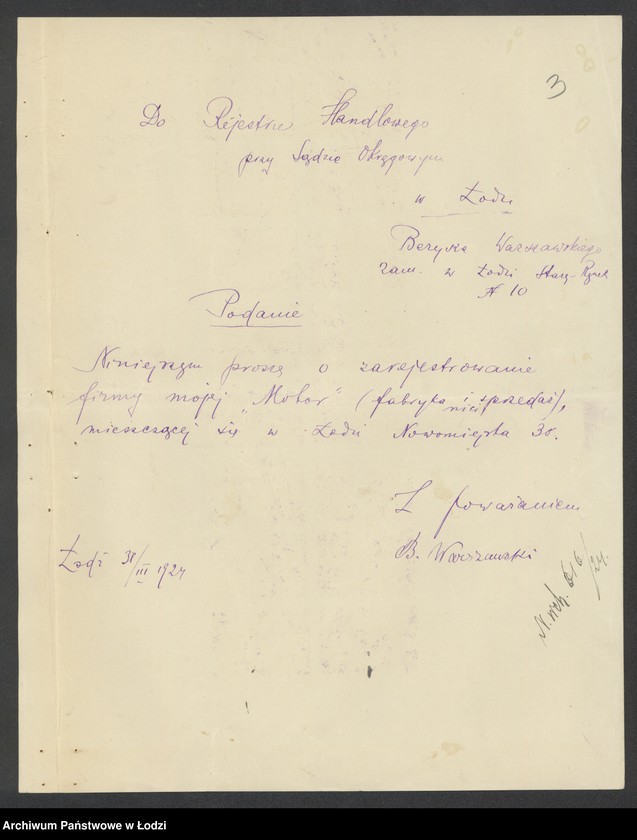 3
Do Rejestru Handlowego
przy Sądzie Okręgowym
w Łodzi
Beryka Warszawskiego
zam. w Łodzi Stary-Rynek
№ 10
Podanie
Niniejszym proszę o zarejestrowanie
firmy mojej „Motor" (fabryka nici i sprzedaż),
mieszczącej się w Łodzi Nowomiejska 30.
Z poważaniem
B. Warszawski
Łódź 31/III 1924
Archiwum Państwowe w Łodzi